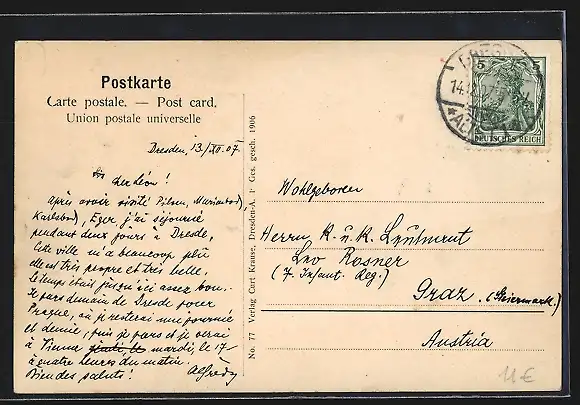 Postkarte
Carte postale. — Post card.
Union postale universelle
Dresden, 13./XII.07.
cher Léon!
Après avoir visité Pilsen, Marienbad,
Karlsbad, Eger j'ai séjourné
pendant deux jours à Dresde,
Cette ville m'a beaucoup plu
elle est très propre et très belle.
Le temps était jusqu'ici assez bon.
Je pars demain de Dresde pour
Prague, où je resterai une journée
et demie, puis je pars et je serai
à Vienne mardi, le 17
à quatre heures du matin.
Bien des saluts! Alfred
No. 77 Verlag Curt Krause, Dresden-A. 1 Ges. gesch. 1906
DRESDEN
14.12.07
*ALTST.
5 5
DEUTSCHES REICH
Wohlgeboren
Herrn K. u. K. Leutnant
Leo Rosner
(7. Infant. Reg.)
Graz. (Steiermark.)
Austria
11€